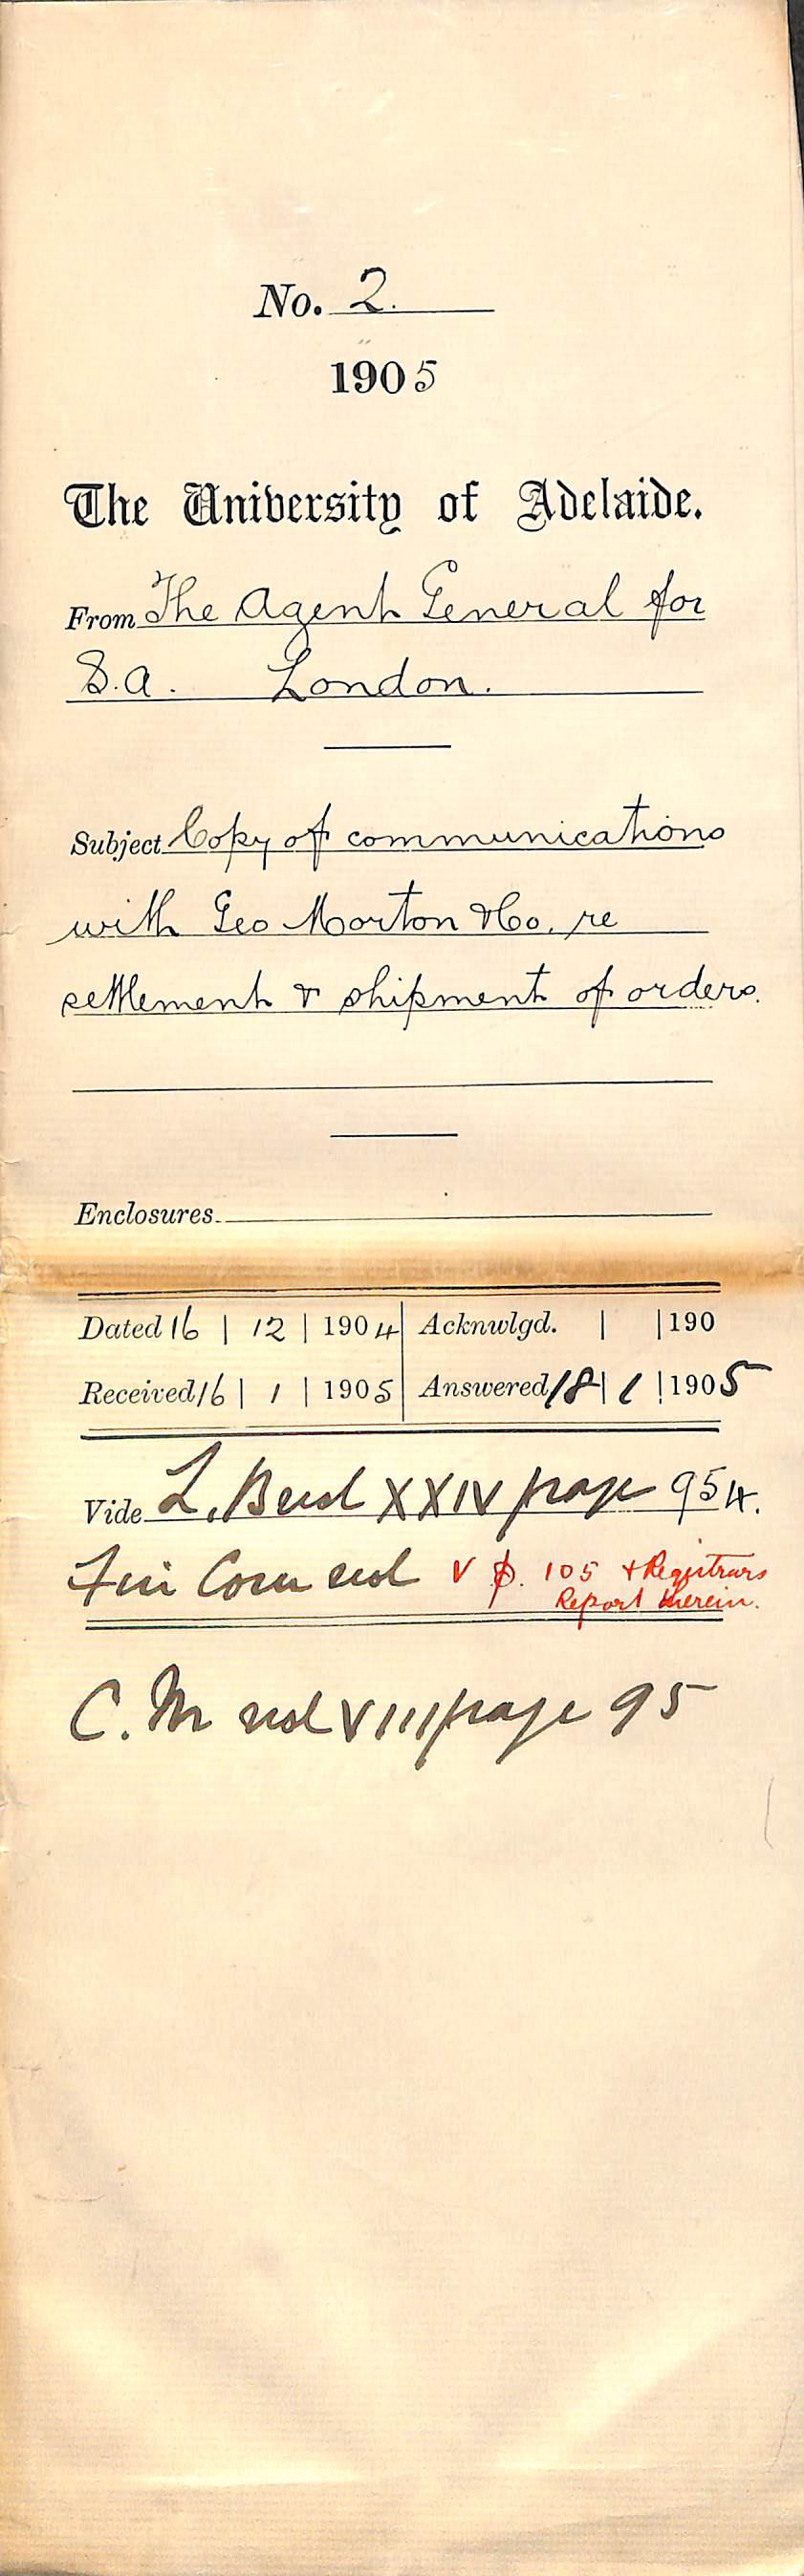 No. 2.
1905
The University of Adelaide.
From The Agent General for
S.A. London.
Subject Copy of communications
with Geo Morton & Co. re
settlement & shipment of orders.
Enclosures
Dated 16 | 12 | 1904 Acknwlgd. | | 190
Received 16 | 1 | 1905 Answered 18 | 1 | 1905
Vide L. B vol XXIV page 954.
Fin Com vol V p. 105 + Registrars
Report therein.
C. M vol VIII page 95